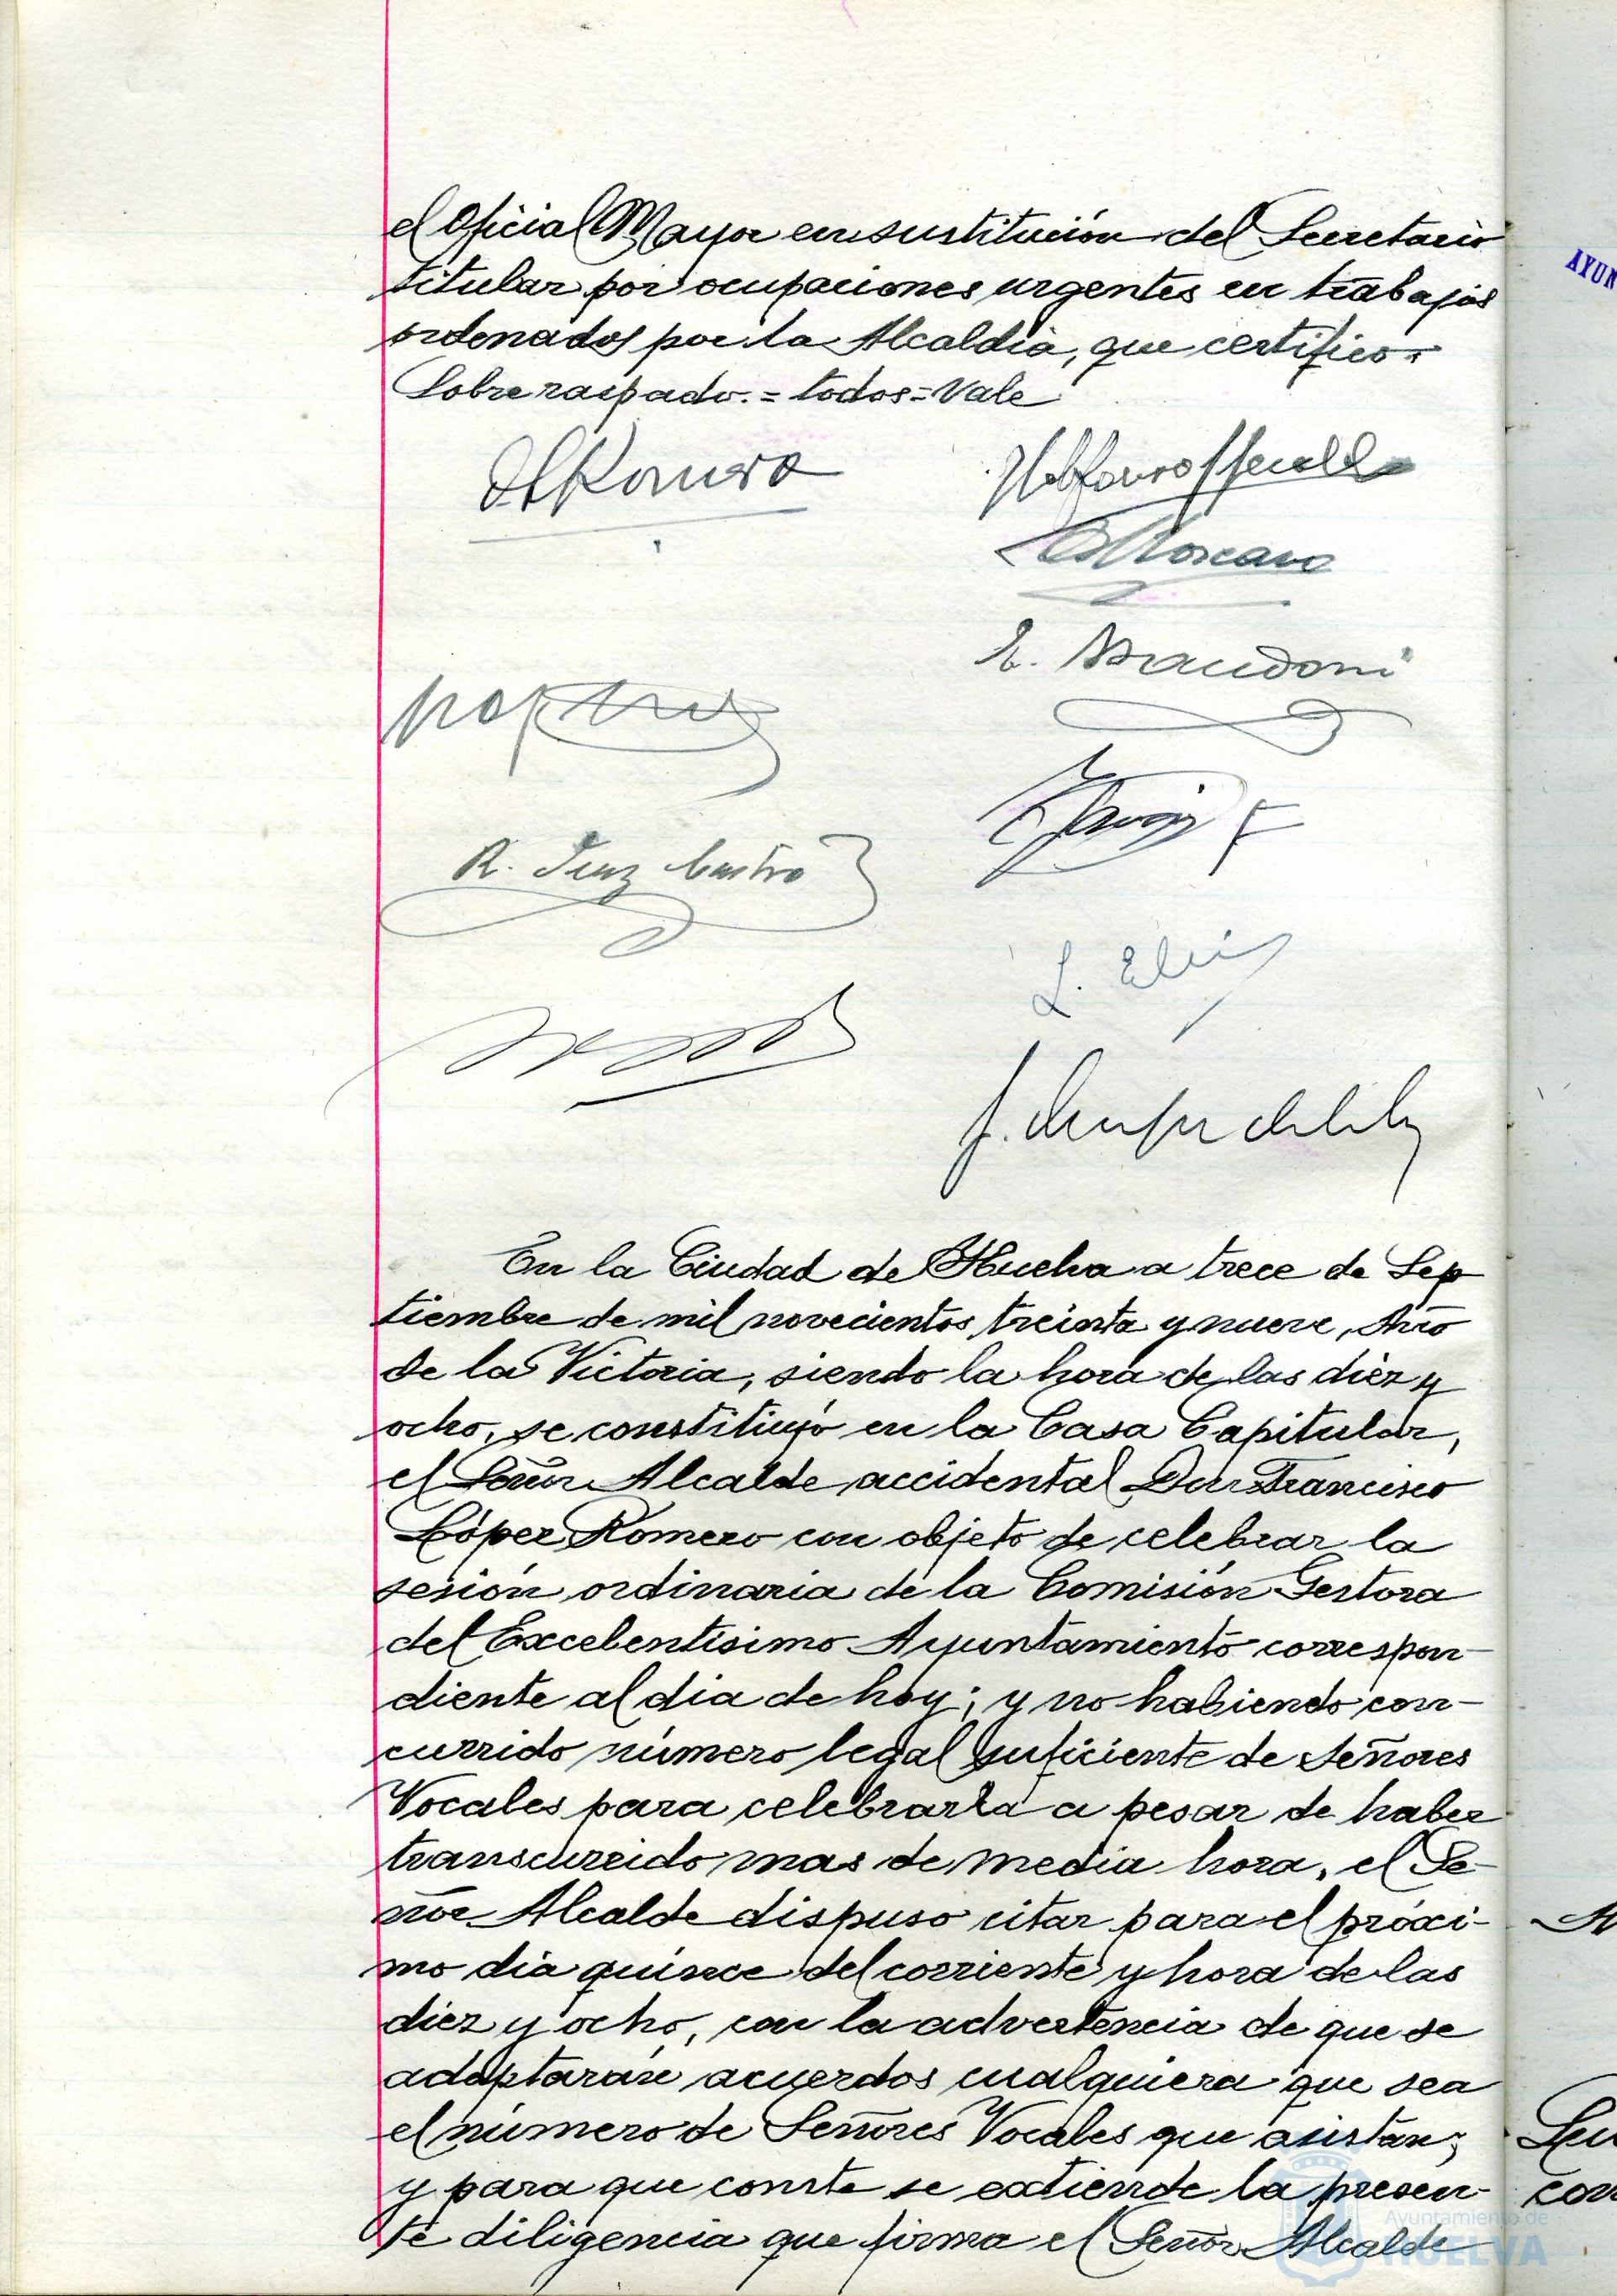 el Oficial Mayor en sustitución del Secretario
titular por ocupaciones urgentes en trabajos
ordenados por la Alcaldia, que certifico.
Sobre raspado.=todos=Vale
R. Castro
En la Ciudad de Huelva a trece de Sep
tiembre de mil novecientos treinta y nueve, Año
de la Victoria, siendo la hora de las diez y
ocho, se constituyó en la Casa Capitular,
el Señor Alcalde accidental Don Francisco
López Romero con objeto de celebrar la
sesión ordinaria de la Comisión Gestora
del Excelentisimo Ayuntamiento correspon-
diente al dia de hoy; y no habiendo con-
currido número legal suficiente de Señores
Vocales para celebrarla a pesar de haber
transcurrido mas de media hora, el Se-
ñor Alcalde dispuso citar para el próxi-
mo dia quince del corriente y hora de las
diez y ocho, con la advertencia de que se
adoptarán acuerdos cualquiera que sea
el número de Señores Vocales que asistan;
y para que conste se extiende la presen-
te diligencia que firma el Señor Alcalde
AYUN
Ayuntamiento de
HUELVA